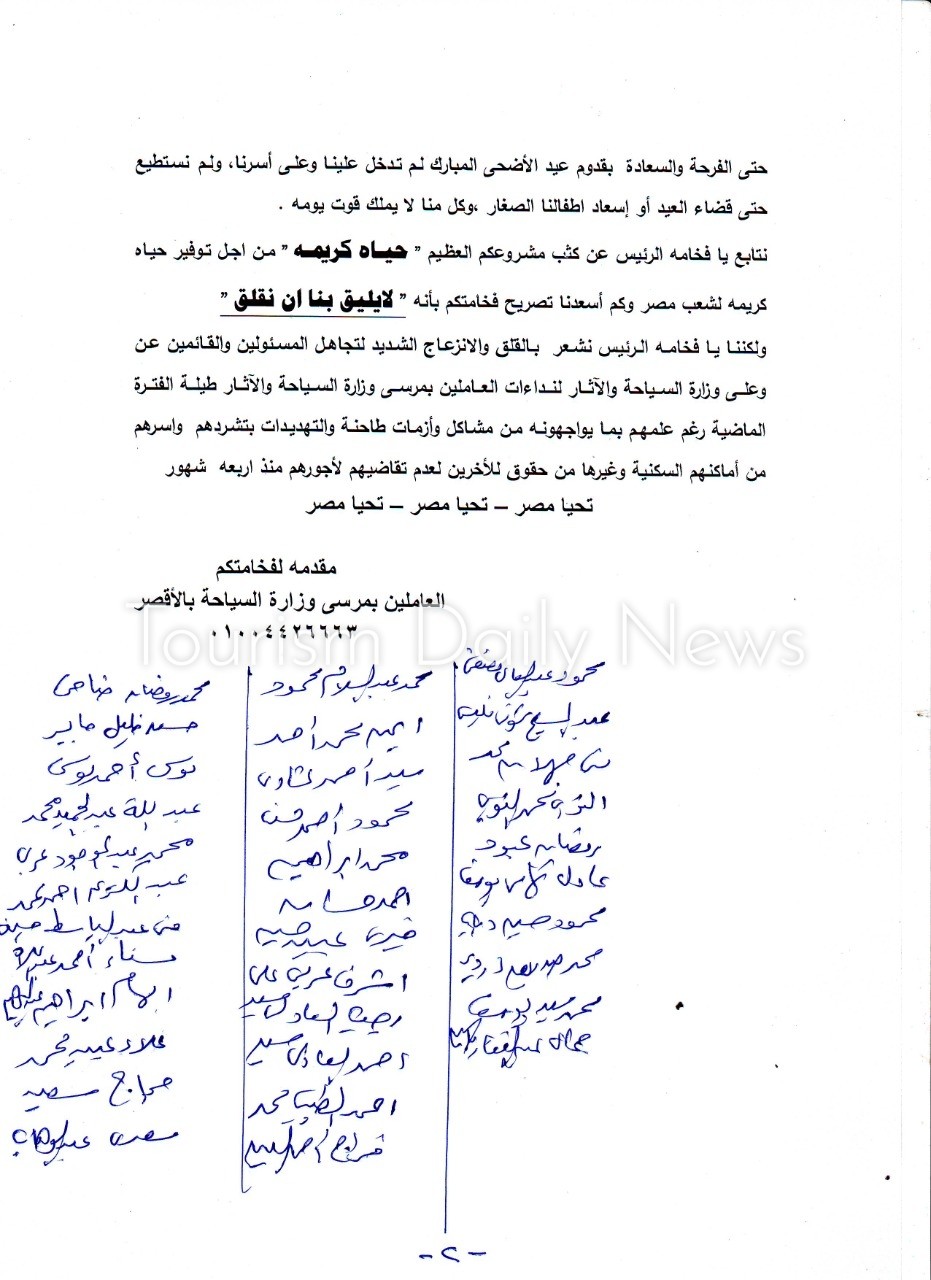 حتى الفرحة والسعادة بقدوم عيد الأضحى المبارك لم تدخل علينا وعلى أسرنا، ولم نستطيع
حتى قضاء العيد أو إسعاد اطفالنا الصغار ،وكل منا لا يملك قوت يومه .
نتابع يا فخامه الرئيس عن كثب مشروعكم العظيم " حياه كريمه " من اجل توفير حياه
كريمه لشعب مصر وكم أسعدنا تصريح فخامتكم بأنه " لايليق بنا ان نقلق "
ولكننا يا فخامه الرئيس نشعر بالقلق والانزعاج الشديد لتجاهل المسئولين والقائمين عن
وعلى وزارة السياحة والآثار لنداءات العاملين بمرسى وزارة السياحة والآثار طيلة الفترة
الماضية رغم علمهم بما يواجهونه من مشاكل وأزمات طاحنة والتهديدات بتشردهم واسرهم
من أماكنهم السكنية وغيرها من حقوق للأخرين لعدم تقاضيهم لأجورهم منذ اربعه شهور
تحيا مصر – تحيا مصر – تحيا مصر
مقدمه لفخامتكم
العاملين بمرسى وزارة السياحة بالأقصر
٠١٠٠٤٤٢٦٦٦٣
Tourism Daily News
محمود
رمضان عبود
عادل
محمود
محمد سيد يوسف
جمال عبد الغفار
محمد عبد السلام محمود
ايمن محمد احمد
سيد أحمد
محمود احمد حسن
محمد ابراهيم
احمد
اشرف عربي علي
احمد
احمد الطيب محمد
فراج أحمد السيد
محمد رمضان ضاحي
جابر
أحمد
عبد الله عبد الحميد محمد
عبد الموجود
احمد محمد
عبد الباسط
سناء أحمد
ابراهيم
علاء عبيد محمد
حجاج سعيد
عبد الوهاب
-٢-